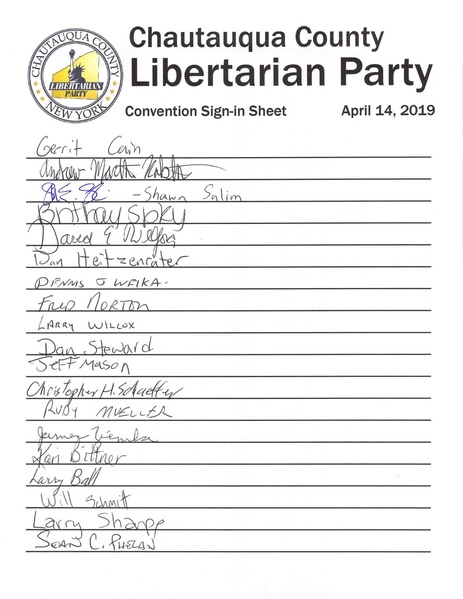 CHAUTAUQUA COUNTY
LIBERTARIAN
PARTY
NEW YORK
Chautauqua County
Libertarian Party
Convention Sign-in Sheet April 14, 2019
Gerrit Cain
Andrew Martin
- Shawn Salim
David E
Dan Heitzenrater
DENNIS J WEIKA
FRED NORTON
LARRY WILCOX
Dan Steward
JEFF MASON
Christopher H. Schaeffer
RUDY MUELLER
James Ziemba
Kari Bittner
Larry Ball
Will Schmitt
Larry Sharpe
SEAN C. PHELAN